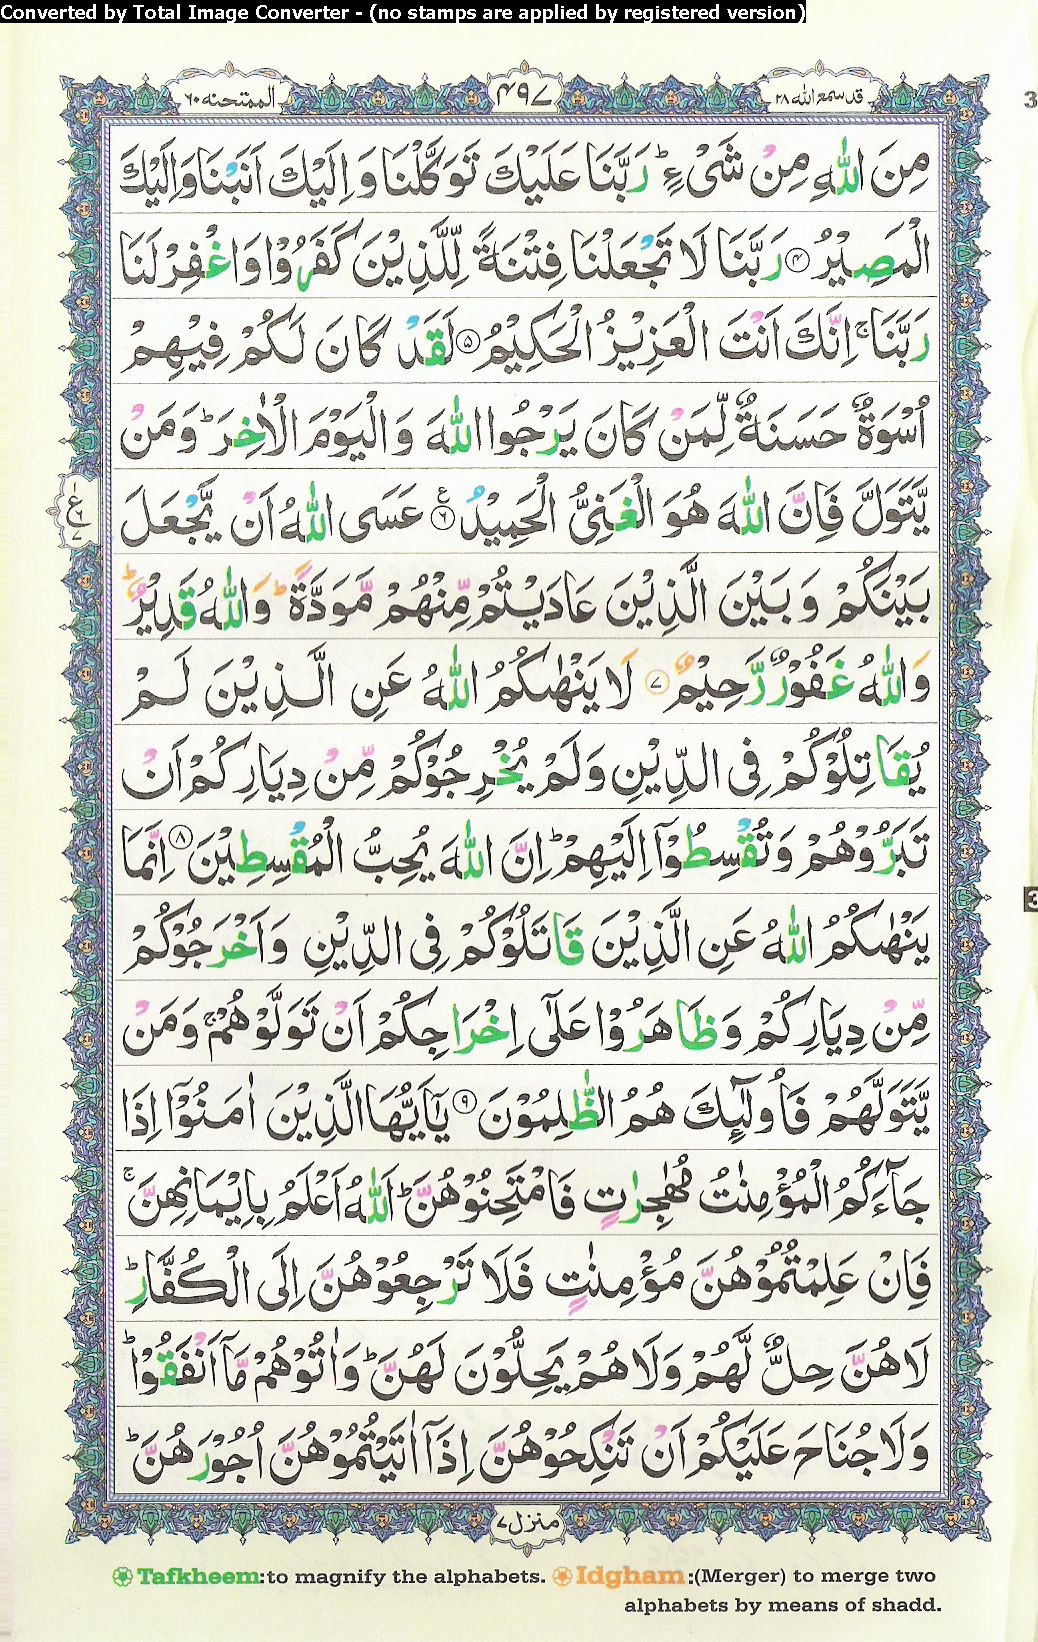 Converted by Total Image Converter - (no stamps are applied by registered version)
قد سمع الله ٢٨
٤٩٧
الممتحنه ٦٠
مِنَ اللّٰهِ مِنْ شَیْءٍ ؕ رَبَّنَا عَلَیْكَ تَوَكَّلْنَا وَ اِلَیْكَ اَنَبْنَا وَ اِلَیْكَ
الْمَصِیْرُ ۝۴ رَبَّنَا لَا تَجْعَلْنَا فِتْنَةً لِّلَّذِیْنَ كَفَرُوْا وَ اغْفِرْ لَنَا
رَبَّنَا ۚ اِنَّكَ اَنْتَ الْعَزِیْزُ الْحَكِیْمُ ۝۵ لَقَدْ كَانَ لَكُمْ فِیْهِمْ
اُسْوَةٌ حَسَنَةٌ لِّمَنْ كَانَ یَرْجُوا اللّٰهَ وَ الْیَوْمَ الْاٰخِرَ ؕ وَ مَنْ
یَّتَوَلَّ فَاِنَّ اللّٰهَ هُوَ الْغَنِیُّ الْحَمِیْدُ ۝۶ عَسَی اللّٰهُ اَنْ یَّجْعَلَ
ع
٦
٧
بَیْنَكُمْ وَ بَیْنَ الَّذِیْنَ عَادَیْتُمْ مِّنْهُمْ مَّوَدَّةً ؕ وَ اللّٰهُ قَدِیْرٌ ؕ
وَ اللّٰهُ غَفُوْرٌ رَّحِیْمٌ ۝۷ لَا یَنْهٰىكُمُ اللّٰهُ عَنِ الَّذِیْنَ لَمْ
یُقَاتِلُوْكُمْ فِی الدِّیْنِ وَ لَمْ یُخْرِجُوْكُمْ مِّنْ دِیَارِكُمْ اَنْ
تَبَرُّوْهُمْ وَ تُقْسِطُوْۤا اِلَیْهِمْ ؕ اِنَّ اللّٰهَ یُحِبُّ الْمُقْسِطِیْنَ ۝۸ اِنَّمَا
یَنْهٰىكُمُ اللّٰهُ عَنِ الَّذِیْنَ قَاتَلُوْكُمْ فِی الدِّیْنِ وَ اَخْرَجُوْكُمْ
مِّنْ دِیَارِكُمْ وَ ظَاهَرُوْا عَلٰۤی اِخْرَاجِكُمْ اَنْ تَوَلَّوْهُمْ ۚ وَ مَنْ
یَّتَوَلَّهُمْ فَاُولٰٓىِٕكَ هُمُ الظّٰلِمُوْنَ ۝۹ یٰۤاَیُّهَا الَّذِیْنَ اٰمَنُوْۤا اِذَا
جَآءَكُمُ الْمُؤْمِنٰتُ مُهٰجِرٰتٍ فَامْتَحِنُوْهُنَّ ؕ اَللّٰهُ اَعْلَمُ بِاِیْمَانِهِنَّ ۚ
فَاِنْ عَلِمْتُمُوْهُنَّ مُؤْمِنٰتٍ فَلَا تَرْجِعُوْهُنَّ اِلَی الْكُفَّارِ ؕ
لَا هُنَّ حِلٌّ لَّهُمْ وَ لَا هُمْ یَحِلُّوْنَ لَهُنَّ ؕ وَ اٰتُوْهُمْ مَّاۤ اَنْفَقُوْا ؕ
وَ لَا جُنَاحَ عَلَیْكُمْ اَنْ تَنْكِحُوْهُنَّ اِذَاۤ اٰتَیْتُمُوْهُنَّ اُجُوْرَهُنَّ ؕ
منزل ٧
Tafkheem:to magnify the alphabets. Idgham:(Merger) to merge two
alphabets by means of shadd.